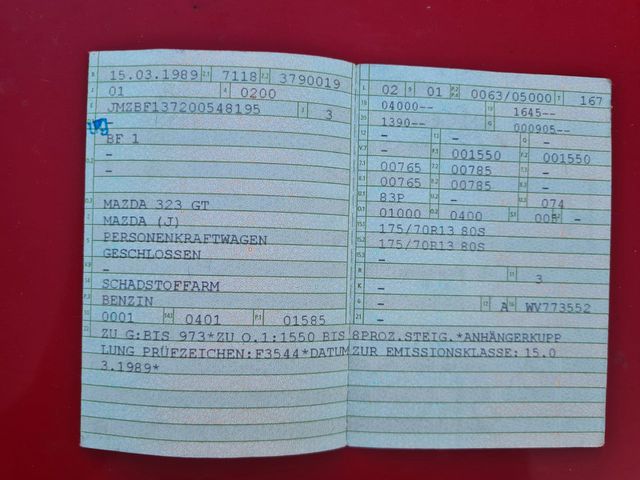 15.03.1989 7118 3790019
01 0200
JMZBF137200548195 3
-
BF 1
-
-
MAZDA 323 GT
MAZDA (J)
PERSONENKRAFTWAGEN
GESCHLOSSEN
-
SCHADSTOFFARM
BENZIN
0001 0401 01585
02 01 0063/05000 167
04000-- 1645--
1390-- 000905--
- - -
- 001550 001550
00765 00785 -
00765 00785 -
83P - 074
01000 0400 -
175/70R13 80S
175/70R13 80S
-
- 3
-
- A WV773552
-
ZU G:BIS 973*ZU O.1:1550 BIS 8PROZ.STEIG.*ANHÄNGERKUPP
LUNG PRÜFZEICHEN:F3544*DATUM ZUR EMISSIONSKLASSE: 15.0
3.1989*